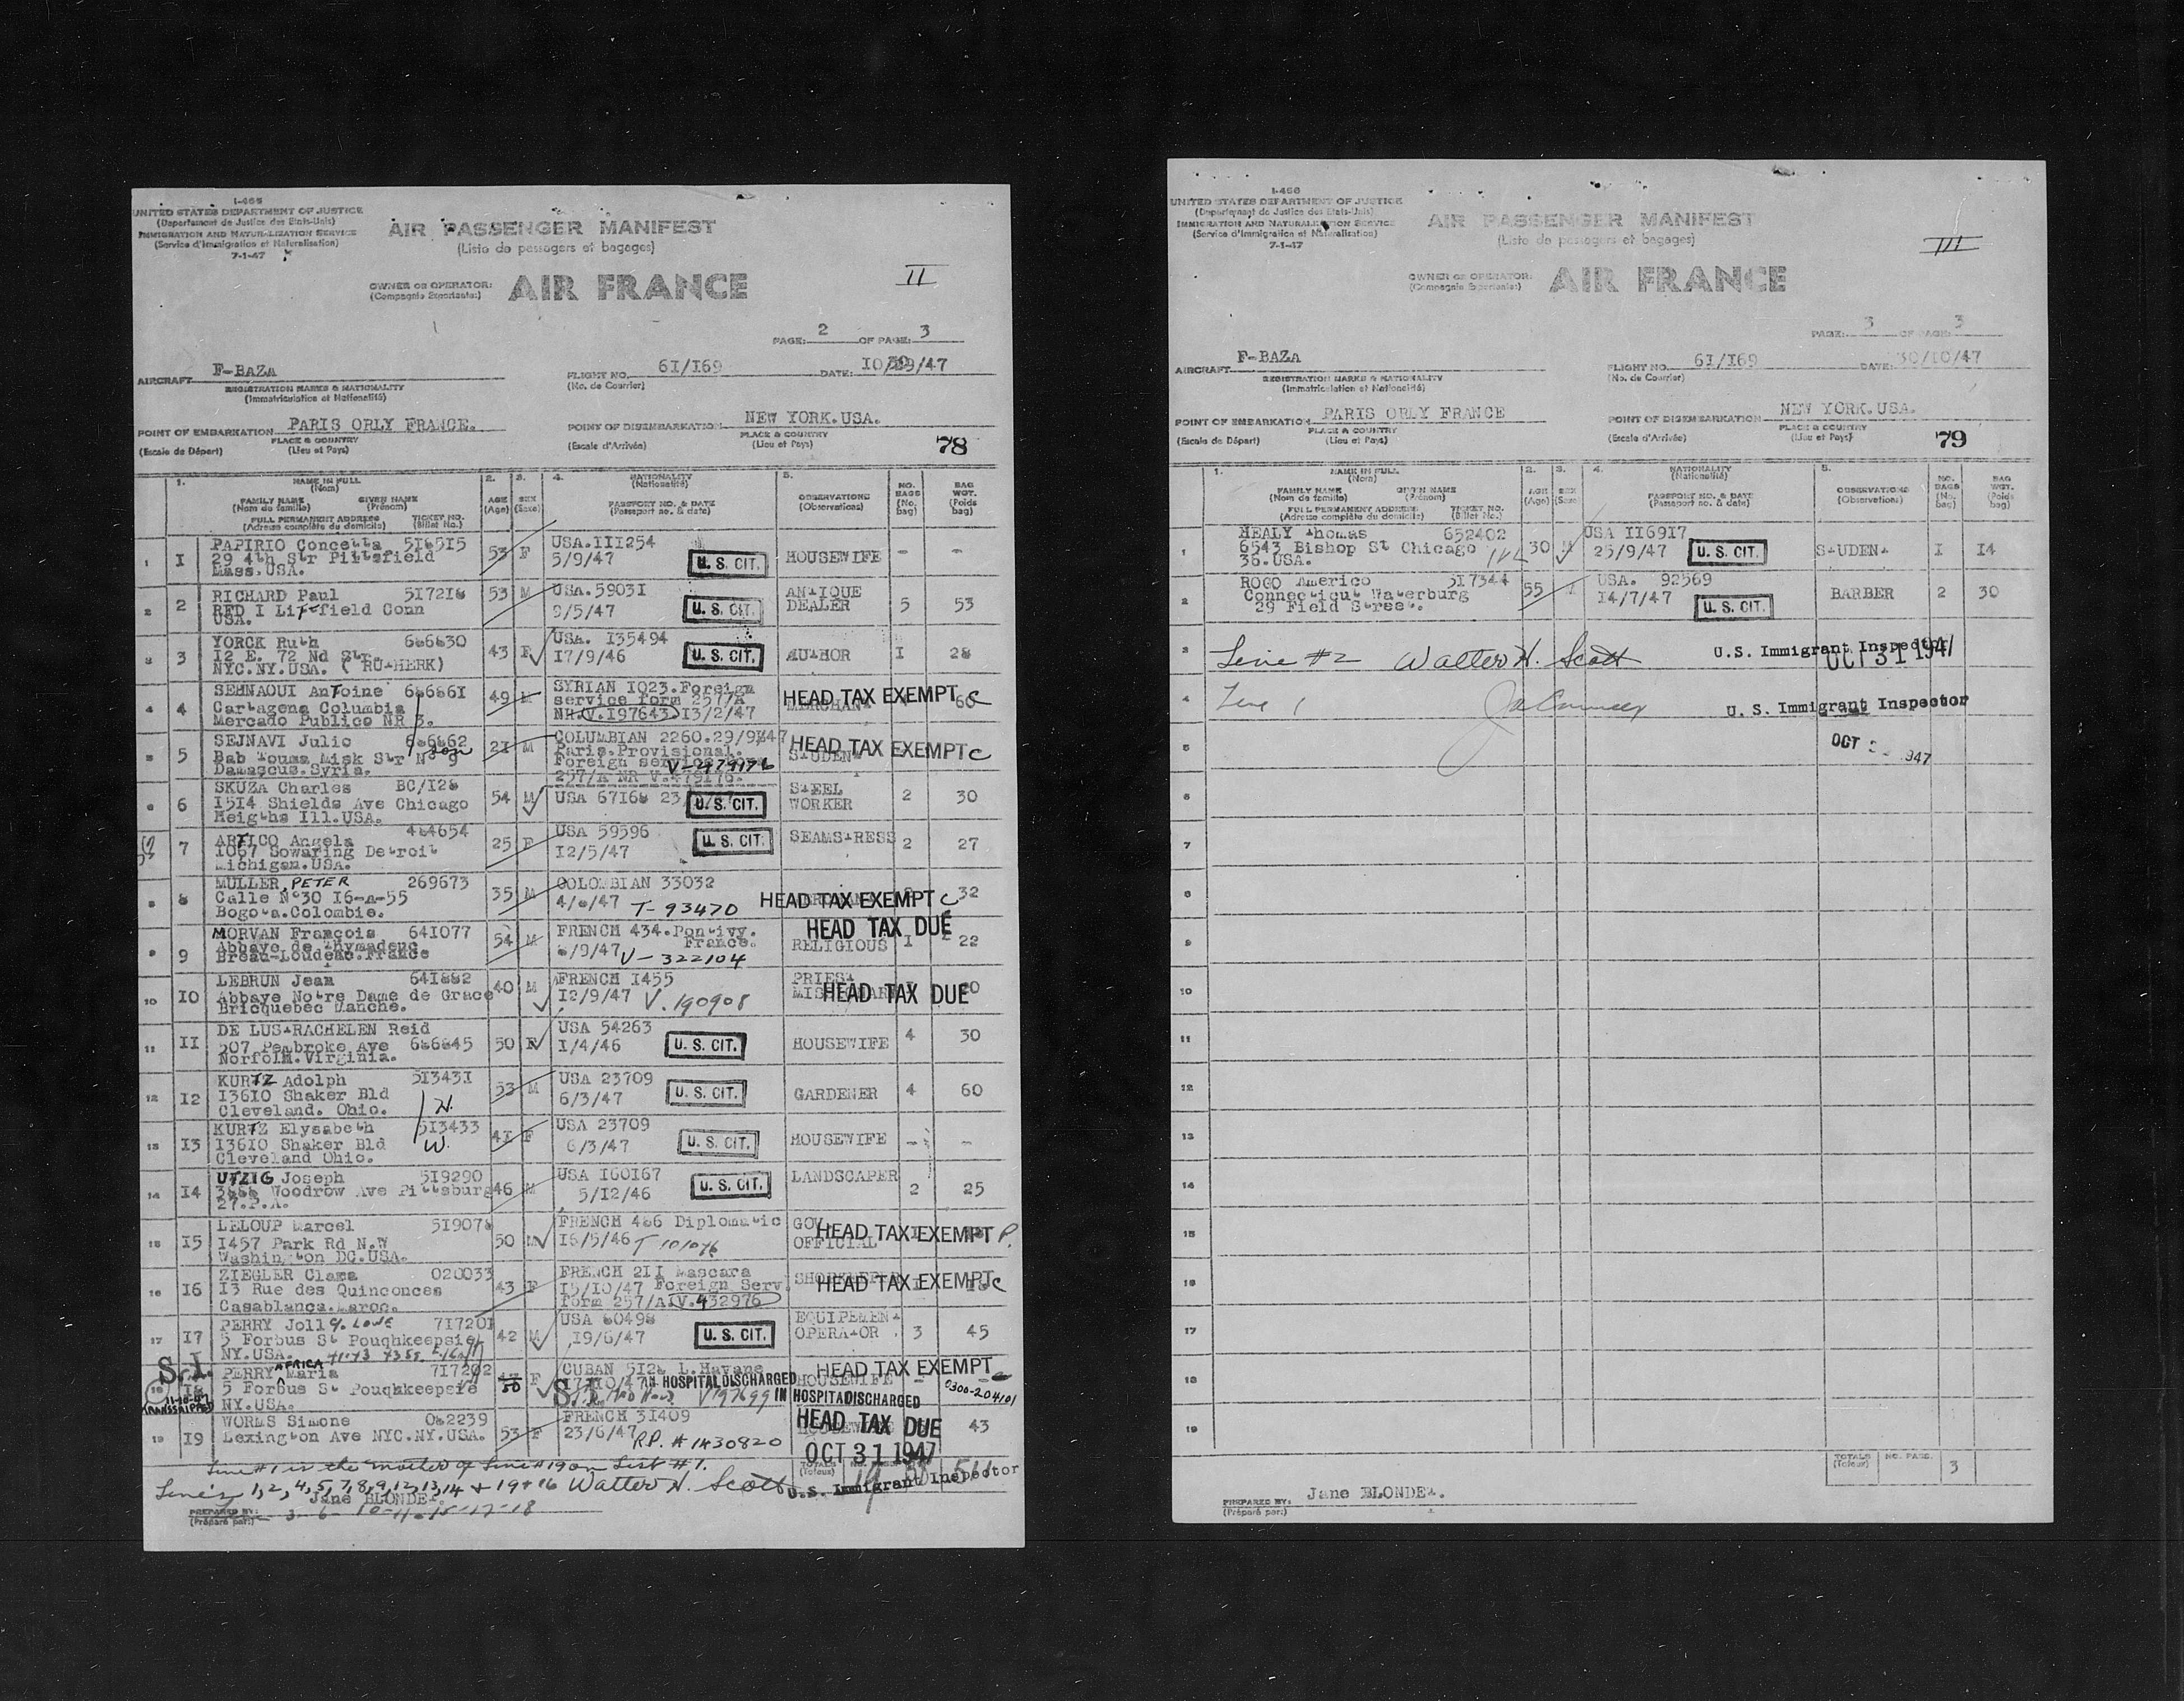 I-466
UNITED STATES DEPARTMENT OF JUSTICE
(Departement de Justice des Etats-Unis)
IMMIGRATION AND NATURALIZATION SERVICE
(Service d'Immigration et Naturalisation)
7-1-47
AIR PASSENGER MANIFEST
(Liste de passagers et bagages)
OWNER OR OPERATOR:
(Compagnie Exportante:)
AIR FRANCE
II
PAGE: 2 OF PAGE: 3
AIRCRAFT F-BAZA
REGISTRATION MARKS & NATIONALITY
(Immatriculation et Nationalité)
FLIGHT NO. 6I/I69
(No. de Courrier)
DATE: IO/ /47
POINT OF EMBARKATION PARIS ORLY FRANCE.
PLACE & COUNTRY
(Escale de Départ) (Lieu et Pays)
POINT OF DISEMBARKATION NEW YORK.USA.
PLACE & COUNTRY
(Escale d'Arrivée) (Lieu et Pays)
78
1. NAME IN FULL (Nom)
FAMILY NAME (Nom de famille) GIVEN NAME (Prénom)
FULL PERMANENT ADDRESS (Adresse complète du domicile) TICKET NO. (Billet No.)
2. AGE (Age)
3. SEX (Sexe)
4. NATIONALITY (Nationalité)
PASSPORT NO. & DATE (Passeport no. & date)
5. OBSERVATIONS (Observations)
NO. BAGS (No. bag)
BAG WGT. (Poids bag)
1 I PAPIRIO Concetta 516515 53 F USA.III254 HOUSEWIFE - -
29 4th Str Pittsfield 5/9/47 U. S. CIT.
Mass.USA.
2 2 RICHARD Paul 517218 53 M USA.5903I ANTIQUE DEALER 5 53
RFD I Litfield Conn 9/5/47 U. S. CIT.
USA.
3 3 YORCK Ruth 686630 43 F USA. I35494 AUTHOR I 28
I2 E. 72 Nd Str. I7/9/46 U. S. CIT.
NYC.NY.USA. ( RUTHERK)
4 4 SEHNAOUI Antoine 686861 49 M SYRIAN IO23.Foreign HEAD TAX EXEMPT C
Cartagena Columbia service form 257/A MERCHANT 60
Mercado Publico NR 3. NR.V.I97643 I3/2/47
5 5 SEJNAVI Julio 686862 2I M COLUMBIAN 2260.29/9/47 HEAD TAX EXEMPT C
Bab Touma Misk Str N° 9 son Paris.Provisional. STUDENT
Damascus.Syria. Foreign service form V-479176
257/A NR V.479176.
6 6 SKUZA Charles BC/I28 54 M USA 67168 23/ U. S. CIT. STEEL WORKER 2 30
I5I4 Shields Ave Chicago
Heigths Ill.USA.
7 7 ARTICO Angela 484654 25 F USA 59596 SEAMSTRESS 2 27
1067 Sowaring Detroit I2/5/47 U. S. CIT.
Michigan.USA.
8 8 MULLER, PETER 269673 35 M COLOMBIAN 33032 32
Calle N°30 I6-A-55 4/8/47 T-93470 HEAD TAX EXEMPT C
Bogota.Colombie.
9 9 MORVAN François 641077 54 M FRENCH 434.Pontivy. HEAD TAX DUE
Abbaye de Thymadeuc France. RELIGIOUS 1 22
Breau-Loudeac.France 8/9/47 V-322104
10 IO LEBRUN Jean 641882 40 M FRENCH I455 PRIEST MISSIONARY
Abbaye Notre Dame de Grace I2/9/47 V.190908 HEAD TAX DUE
Bricquebec Manche.
11 II DE LUSTRACHELEN Reid 50 F USA 54263 HOUSEWIFE 4 30
507 Pembroke Ave 686845 I/4/46 U. S. CIT.
Norfolk.Virginia.
12 I2 KURTZ Adolph 513431 53 M USA 23709 GARDENER 4 60
I3610 Shaker Bld 6/3/47 U. S. CIT.
Cleveland. Ohio. H.
13 I3 KURTZ Elysabeth 513433 41 F USA 23709 HOUSEWIFE - -
I3610 Shaker Bld W. 6/3/47 U. S. CIT.
Cleveland Ohio.
14 I4 UTZIG Joseph 519290 46 M USA I60167 LANDSCAPER 2 25
Woodrow Ave Pittsburg 5/I2/46 U. S. CIT.
27.P.A.
15 I5 LELOUP Marcel 519078 50 M FRENCH 486 Diplomatic GOV. OFFICIAL
I457 Park Rd N.W I6/5/46 T 101076 HEAD TAX EXEMPT P.
Washington DC.USA.
16 I6 ZIEGLER Clama 020033 43 F FRENCH 2II Mascara
I3 Rue des Quinconces I5/IO/47 Foreign Serv. HEAD TAX EXEMPT C
Casablanca.Maroc. form 257/A IV.432976
17 I7 PERRY Jolly. LOWE 717201 42 M USA 60498 EQUIPEMENT OPERATOR 3 45
5 Forbus St Poughkeepsie I9/6/47 U. S. CIT.
NY.USA.
S.I. 18 I8 PERRY AFRICA Maria 717202 50 F CUBAN 5I28 L.Havane HEAD TAX EXEMPT
5 Forbus St Poughkeepsie S.I. IN HOSPITAL DISCHARGED HOUSEWIFE
NY.USA. V197699 IN HOSPITAL DISCHARGED 0300-204101
19 I9 WORMS Simone 082239 53 F FRENCH 31409 HEAD TAX DUE 43
Lexington Ave NYC.NY.USA. 23/6/47 R.P. #1430820
OCT 31 1947
Line #1 is the mother of Line #19 on List #1.
Line's 1, 2, 4, 5, 7, 8, 9, 12, 13, 14 + 19 + 16 Walter H. Scott U.S. Immigrant Inspector
TOTALS (Totaux) 19 511
PREPARED BY: Jane BLONDET.
(Préparé par:) 3-6-10-11-15-17-18
I-466
UNITED STATES DEPARTMENT OF JUSTICE
(Departement de Justice des Etats-Unis)
IMMIGRATION AND NATURALIZATION SERVICE
(Service d'Immigration et Naturalisation)
7-1-47
AIR PASSENGER MANIFEST
(Liste de passagers et bagages)
OWNER OR OPERATOR:
(Compagnie Exportante:)
AIR FRANCE
III
PAGE: 3 OF PAGE: 3
AIRCRAFT F-BAZA
REGISTRATION MARKS & NATIONALITY
(Immatriculation et Nationalité)
FLIGHT NO. 6I/I69
(No. de Courrier)
DATE: 30/IO/47
POINT OF EMBARKATION PARIS ORLY FRANCE
PLACE & COUNTRY
(Escale de Départ) (Lieu et Pays)
POINT OF DISEMBARKATION NEW YORK.USA.
PLACE & COUNTRY
(Escale d'Arrivée) (Lieu et Pays)
79
1. NAME IN FULL (Nom)
FAMILY NAME (Nom de famille) GIVEN NAME (Prénom)
FULL PERMANENT ADDRESS (Adresse complète du domicile) TICKET NO. (Billet No.)
2. AGE (Age)
3. SEX (Sexe)
4. NATIONALITY (Nationalité)
PASSPORT NO. & DATE (Passeport no. & date)
5. OBSERVATIONS (Observations)
NO. BAGS (No. bag)
BAG WGT. (Poids bag)
1 HEALY Thomas 652402 30 M USA II6917 STUDENT I I4
6543 Bishop St Chicago 25/9/47 U. S. CIT.
36.USA.
2 ROGO Americo 517344 55 M USA. 92569 BARBER 2 30
Connecticut Waterburg I4/7/47 U. S. CIT.
29 Field Street.
3 Line #2 Walter H. Scott U.S. Immigrant Inspector
OCT 31 1947
4 Line 1 U. S. Immigrant Inspector
5 OCT 1947
6
7
8
9
10
11
12
13
14
15
16
17
18
19
TOTALS (Totaux) NO. PASS. 3
PREPARED BY: Jane BLONDET.
(Préparé par:)